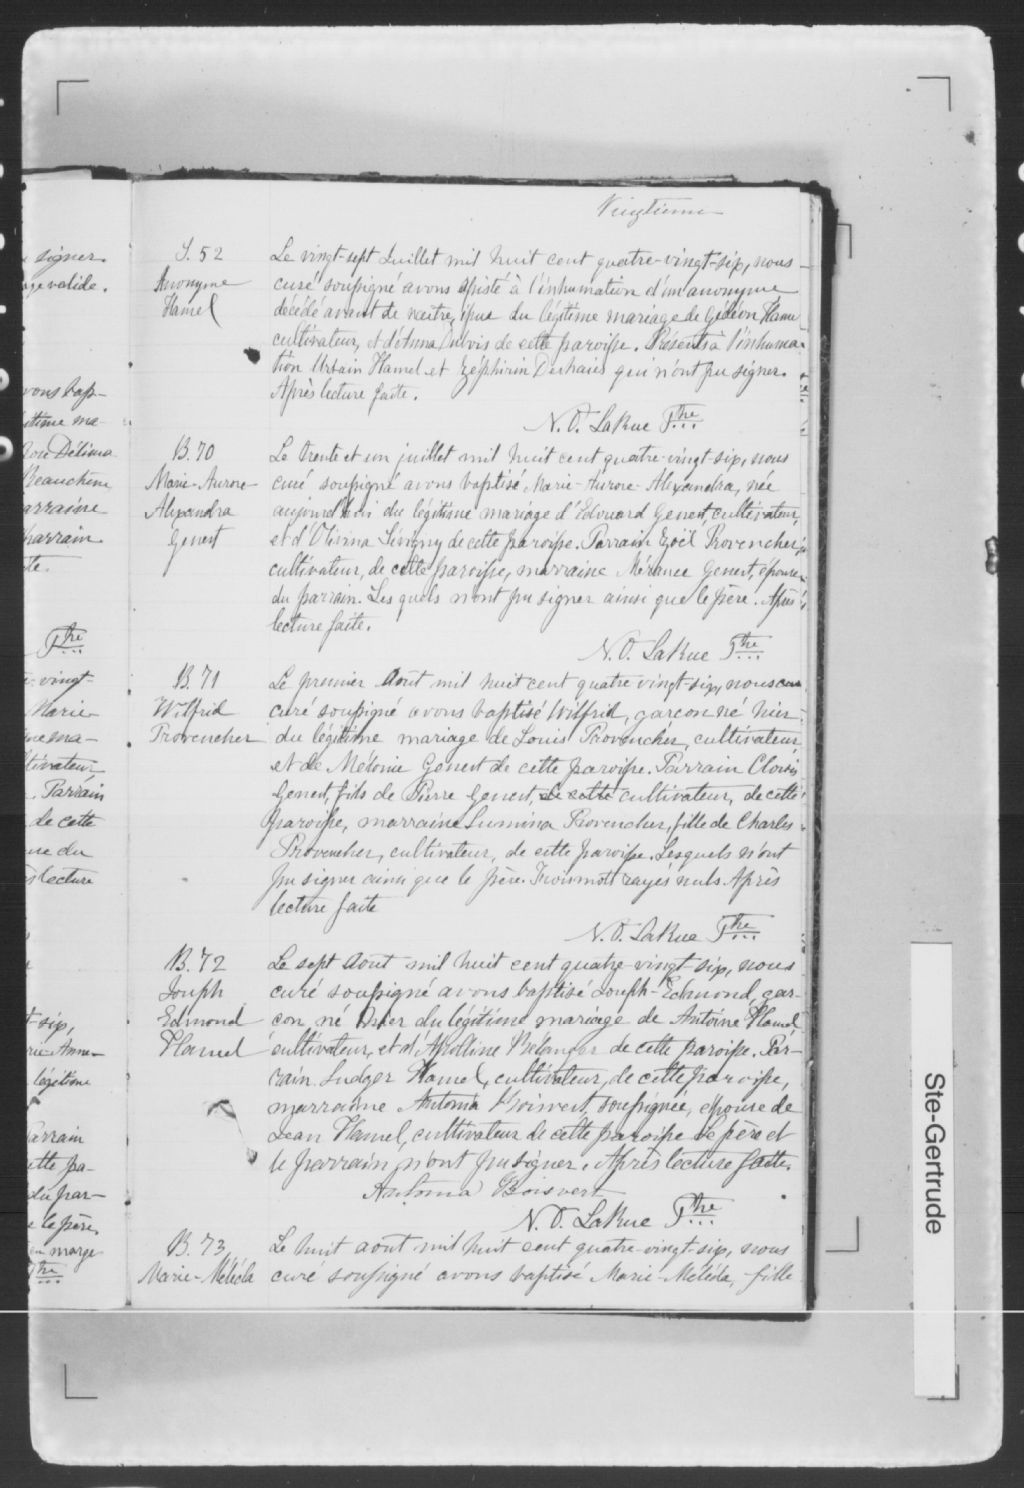 Vingtième
signer.
valide.
S. 52
Anonyme
Hamel
Le vingt-sept Juillet mil huit cent quatre-vingt-six, nous
curé soussigné avons assisté à l'inhumation d'un anonyme
décédé avant de naitre, issu du légitime mariage de Gédéon Hamel
cultivateur, et d'Anna Dubois de cette paroisse. Présents à l'inhuma-
tion Urbain Hamel et Zéphirin Deshaies qui n'ont pu signer.
Après lecture faite.
N. O. LaRue Ptre
vons bap-
itime ma-
Délima
Beauchene
arraine
parrain
te.
Ptre
B. 70
Marie-Aurore-
Alexandra
Genest
Le trente et un juillet mil huit cent quatre-vingt-six, nous
curé soussigné avons baptisé Marie-Aurore-Alexandra, née
aujourd'hui du légitime mariage d'Edouard Genest, cultivateur,
et d'Olivina Lévigny de cette paroisse. Parrain Zoël Provencher,
cultivateur, de cette paroisse, marraine Mérance Genest, épouse
du parrain. Lesquels n'ont pu signer ainsi que le père. Après
lecture faite.
N. O. LaRue Ptre
vingt-
Marie
me ma-
tivateur
Parrain
de cette
se du
lecture
B. 71
Wilfrid
Provencher
Le premier Aout mil huit cent quatre vingt-six, nous
curé soussigné avons baptisé Wilfrid, garcon né hier
du légitime mariage de Louis Provencher, cultivateur
et de Mélonie Genest de cette paroisse. Parrain Clovis
Genest, fils de Pierre Genest, de cette cultivateur, de cette
paroisse, marraine Lumina Provencher, fille de Charles
Provencher, cultivateur, de cette paroisse. Lesquels n'ont
pu signer ainsi que le père. Trois mots rayés nuls. Après
lecture faite
N. O. LaRue Ptre
t-six,
rie-Anne-
légitime
Parrain
ette pa-
du par-
le père
en marge
Ptre
B. 72
Joseph
Edmond
Hamel
Le sept Aout mil huit cent quatre-vingt-six, nous
curé soussigné avons baptisé Joseph-Edmond, gar-
con né hier du légitime mariage de Antoine Hamel,
cultivateur, et d'Apolline Bélanger de cette paroisse. Par-
rain Ludger Hamel, cultivateur, de cette paroisse,
marraine Antonia Boisvert, soussignée, épouse de
Jean Hamel, cultivateur de cette paroisse. Le père et
le parrain n'ont pu signer. Après lecture faite.
Antonia Boisvert
N. O. LaRue Ptre
B. 73
Marie-Méléda
Le huit aout mil huit cent quatre-vingt-six, nous
curé soussigné avons baptisé Marie-Méléda, fille
Ste-Gertrude